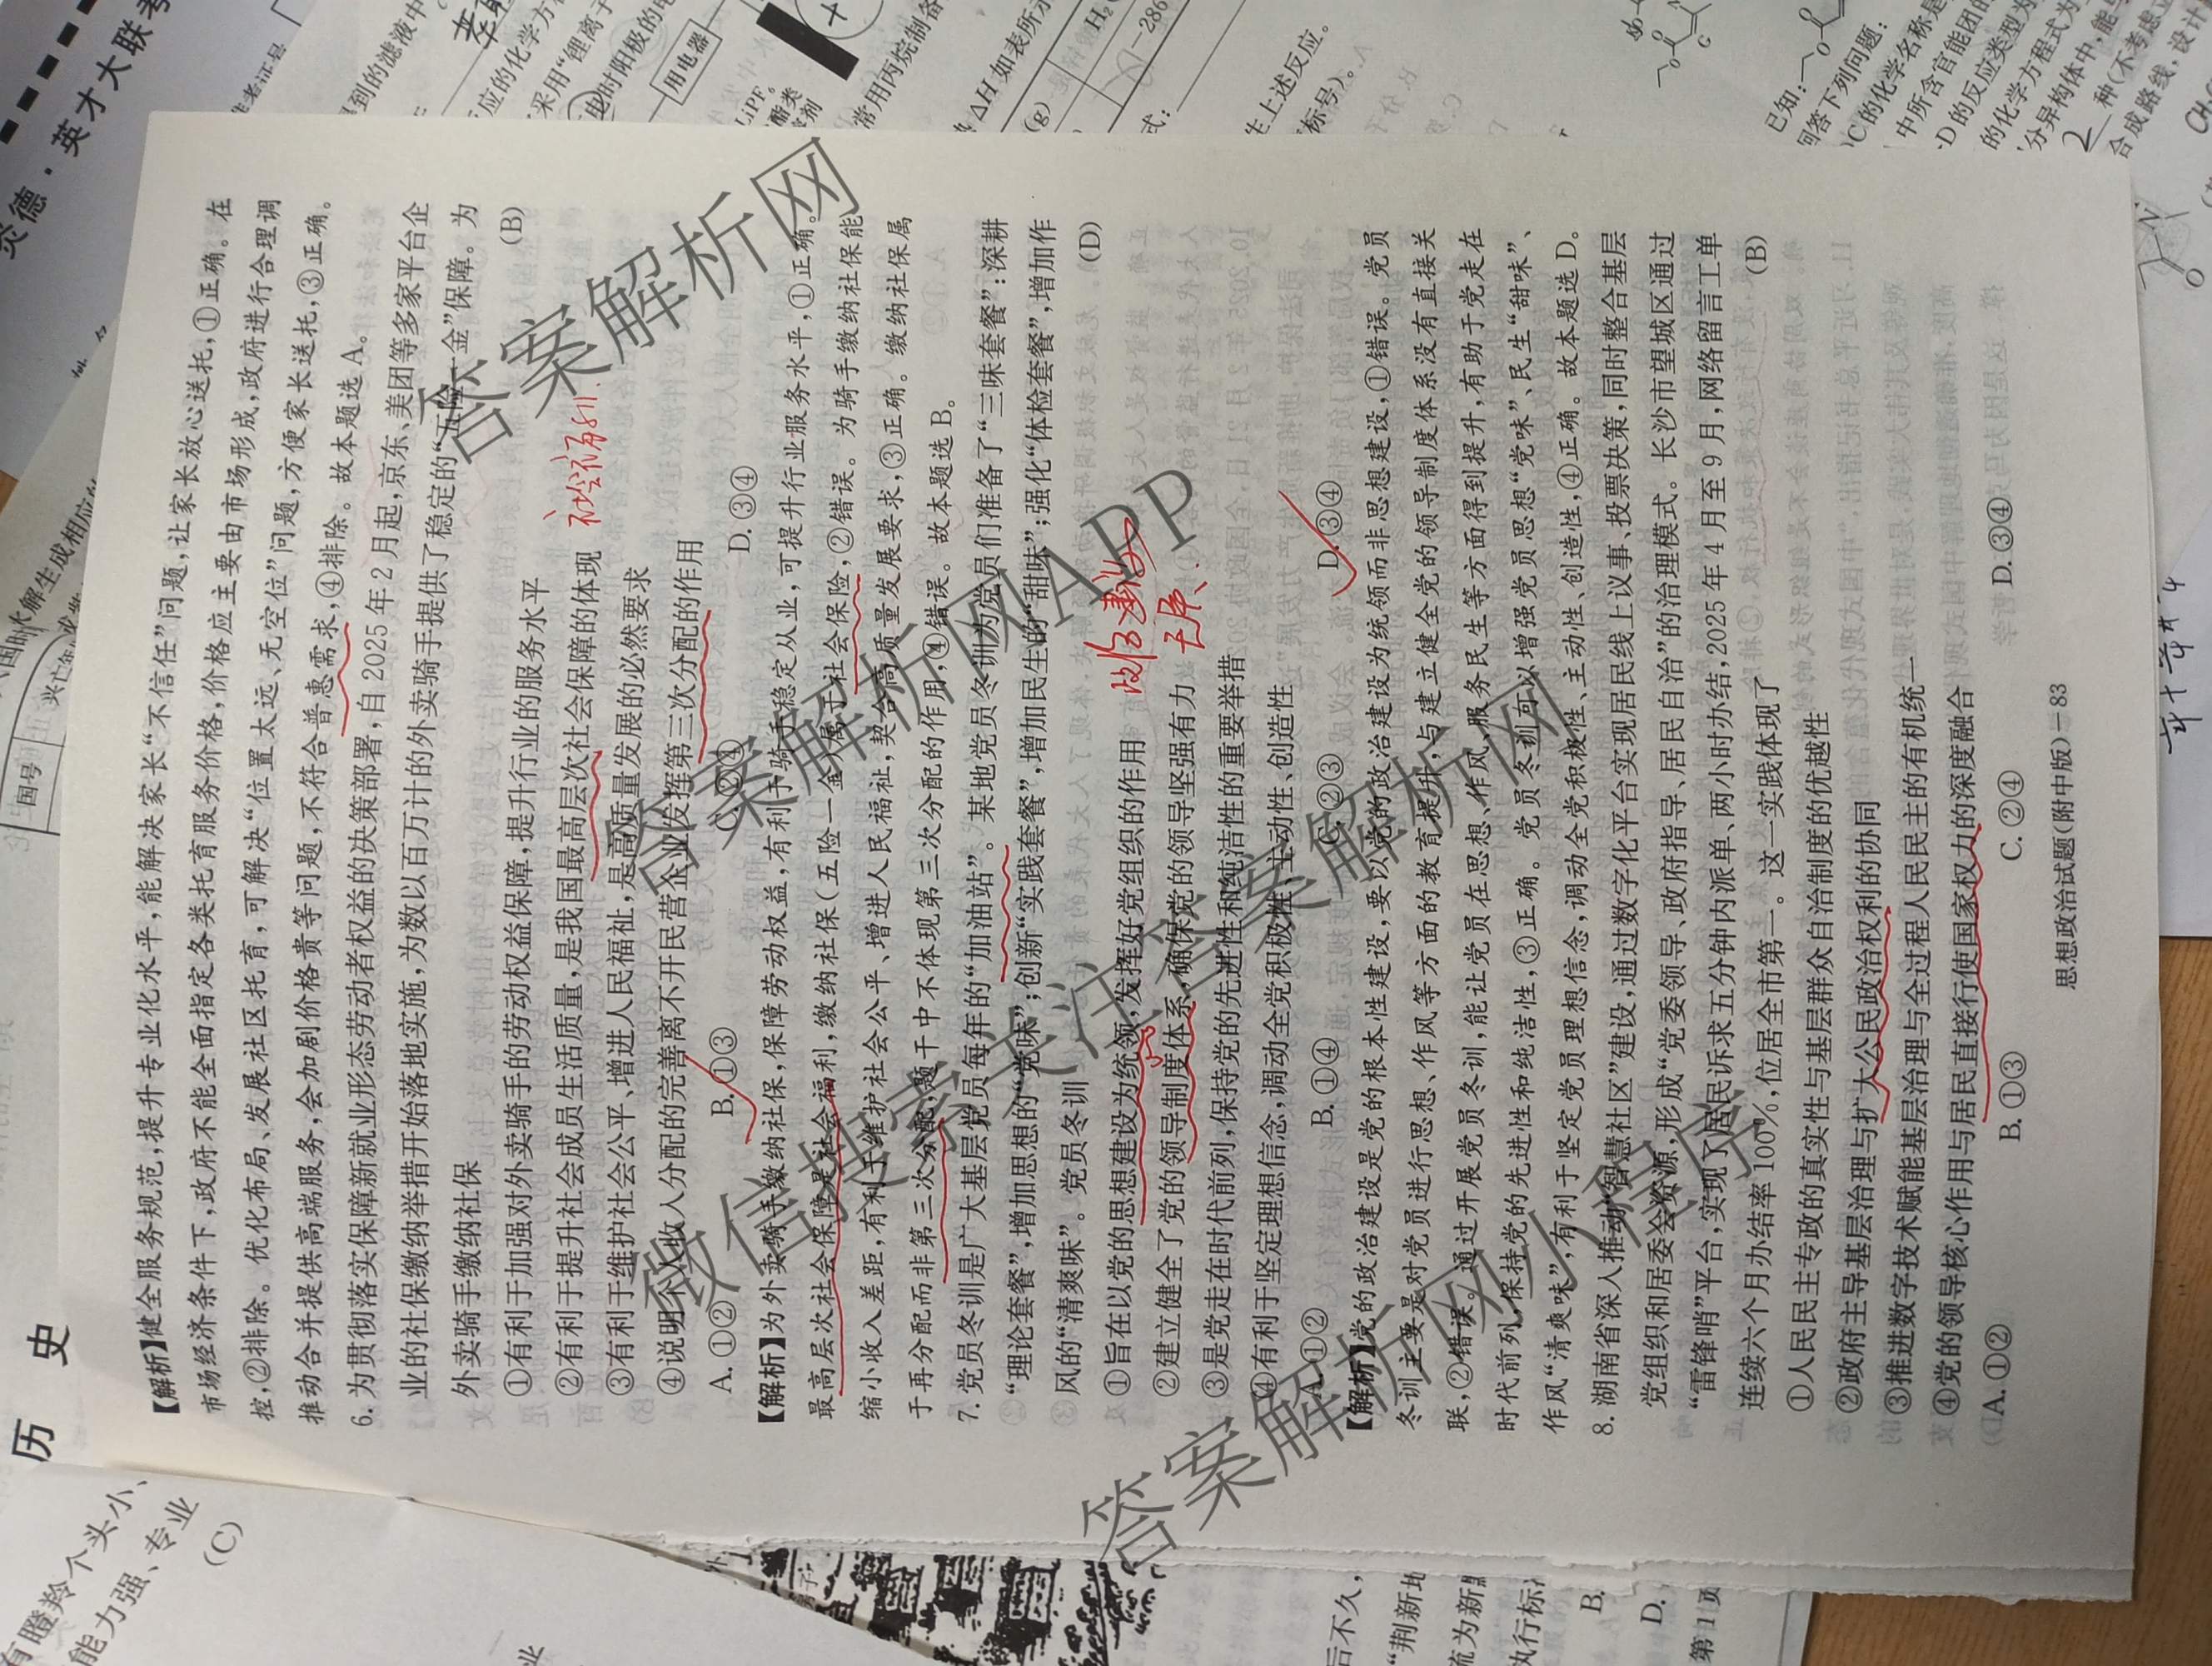 【解析】健全服务规范,提升专业化水平,能解决家长“不信任”问题,让家长放心送托,①正确。在
市场经济条件下,政府不能全面指定各类托育服务价格,价格应主要由市场形成,政府进行合理调
控,②排除。优化布局、发展社区托育,可解决“位置太远、无空位”问题,方便家长送托,③正确。
推动合并提供高端服务,会加剧价格贵等问题,不符合普惠需求,④排除。故本题选 A。
6. 为贯彻落实保障新就业形态劳动者权益的决策部署,自 2025 年 2 月起,京东、美团等多家平台企
业的社保缴纳举措开始落地实施,为数以百万计的外卖骑手提供了稳定的“五险一金”保障。为
外卖骑手缴纳社保 (B)
①有利于加强对外卖骑手的劳动权益保障,提升行业的服务水平
②有利于提升社会成员生活质量,是我国最高层次社会保障的体现
社会福利
③有利于维护社会公平、增进人民福祉,是高质量发展的必然要求
④说明个人收入分配的完善离不开民营企业发挥第三次分配的作用
A. ①② B. ①③ C. ②④ D. ③④
【解析】为外卖骑手缴纳社保,保障劳动权益,有利于骑手稳定从业,可提升行业服务水平,①正确。
最高层次社会保障是社会福利,缴纳社保(五险一金)属于社会保险,②错误。为骑手缴纳社保能
缩小收入差距,有利于维护社会公平、增进人民福祉,契合高质量发展要求,③正确。缴纳社保属
于再分配而非第三次分配,题干中不体现第三次分配的作用,④错误。故本题选 B。
7. 党员冬训是广大基层党员每年的“加油站”。某地党员冬训为党员们准备了“三味套餐”:深耕
“理论套餐”,增加思想的“党味”;创新“实践套餐”,增加民生的“甜味”;强化“体检套餐”,增加作
风的“清爽味”。党员冬训 (D)
①旨在以党的思想建设为统领,发挥好党组织的作用
政治建设
②建立健全了党的领导制度体系,确保党的领导坚强有力
③是党走在时代前列,保持党的先进性和纯洁性的重要举措
④有利于坚定理想信念,调动全党积极性、主动性、创造性
A. ①② B. ①④ C. ②③ D. ③④
【解析】党的政治建设是党的根本性建设,要以党的政治建设为统领而非思想建设,①错误。党员
冬训主要是对党员进行思想、作风等方面的教育提升,与建立健全党的领导制度体系没有直接关
联,②错误。通过开展党员冬训,能让党员在思想、作风、服务民生等方面得到提升,有助于党走在
时代前列,保持党的先进性和纯洁性,③正确。党员冬训可以增强党员思想“党味”、民生“甜味”、
作风“清爽味”,有利于坚定党员理想信念,调动全党积极性、主动性、创造性,④正确。故本题选 D。
8. 湖南省深入推动“智慧社区”建设,通过数字化平台实现居民线上议事、投票决策,同时整合基层
党组织和居委会资源,形成“党委领导、政府指导、居民自治”的治理模式。长沙市望城区通过
“雷锋哨”平台,实现了居民诉求五分钟内派单、两小时办结,2025 年 4 月至 9 月,网络留言工单
连续六个月办结率 100%,位居全市第一。这一实践体现了 (B)
①人民民主专政的真实性与基层群众自治制度的优越性
②政府主导基层治理与扩大公民政治权利的协同
③推进数字技术赋能基层治理与全过程人民民主的有机统一
④党的领导核心作用与居民直接行使国家权力的深度融合
A. ①② B. ①③ C. ②④ D. ③④
思想政治试题(附中版)—83
答案解析网
答案解析网APP
微信搜索关注答案解析网
答案解析网小程序
历 史
炎德·英才大联考
国号
用电器
第1页
已知:
回答下列问题:
(C)
B.
D.